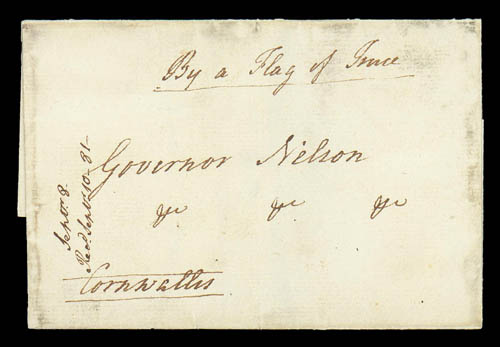 By a Flag of Truce
Governor Nelson
&c &c &c
Cornwallis
Septr. 8
Recd. Sept. 10 - 81 -